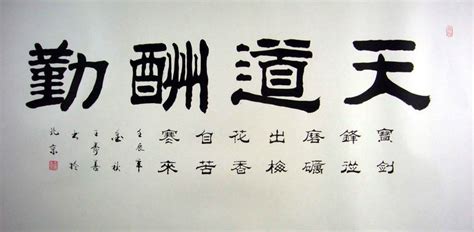 天道酬勤
寶劍
鋒從
磨礪
出梅
花香
自苦
寒來
壬辰年
金秋
書於
北京